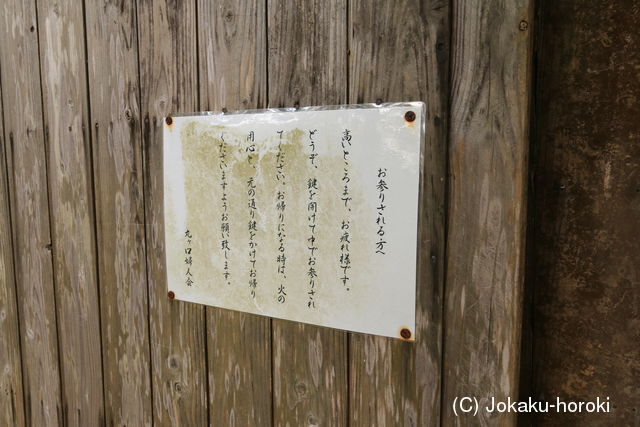 お参りされる方へ
高いところまで、お疲れ様です。
どうぞ、鍵を開けて中でお参りされ
てください。お帰りになる時は、火の
用心と、元の通り鍵をかけてお帰り
くださいますようお願い致します。
丸ヶ口婦人会
(C) Jokaku-horoki